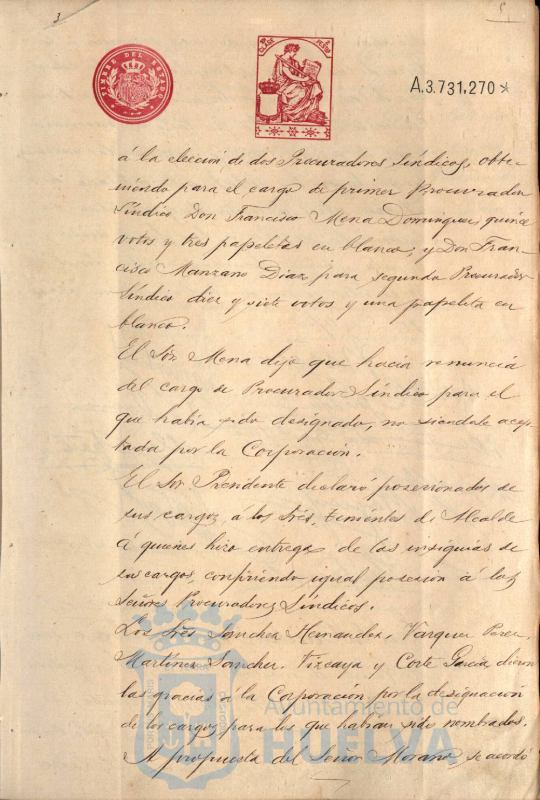 3
5
TIMBRE DEL ESTADO
A.3.731,270*
á la elección de dos Procuradores Síndicos, obte-
niendo para el cargo de primer Procurador
Síndico Don Francisco Mena Dominguez quince
votos y tres papeletas en blanco; y Don Fran-
cisco Manzano Diaz para segundo Procurador
Síndico diez y siete votos y una papeleta en
blanco.
El Sor. Mena dijo que hacía renuncia
del cargo de Procurador Síndico para el
que había sido designado, no siendole acep-
tada por la Corporación.
El Sor. Presidente declaró posesionados de
sus cargos, á los Srés. tenientes de Alcalde
á quienes hizo entrega de las insignias de
sus cargos, confiriendo igual posesión á los
Señores Procuradores Síndicos.
Los Srés Sanchez Hernandez, Vazquez Perez,
Martinez Sanchez, Vizcaya y Corte García dieron
las gracias á la Corporación por la designación
de los cargos para los que habían sido nombrados.
A propuesta del Señor Morano, se acordó
Ayuntamiento de
HUELVA